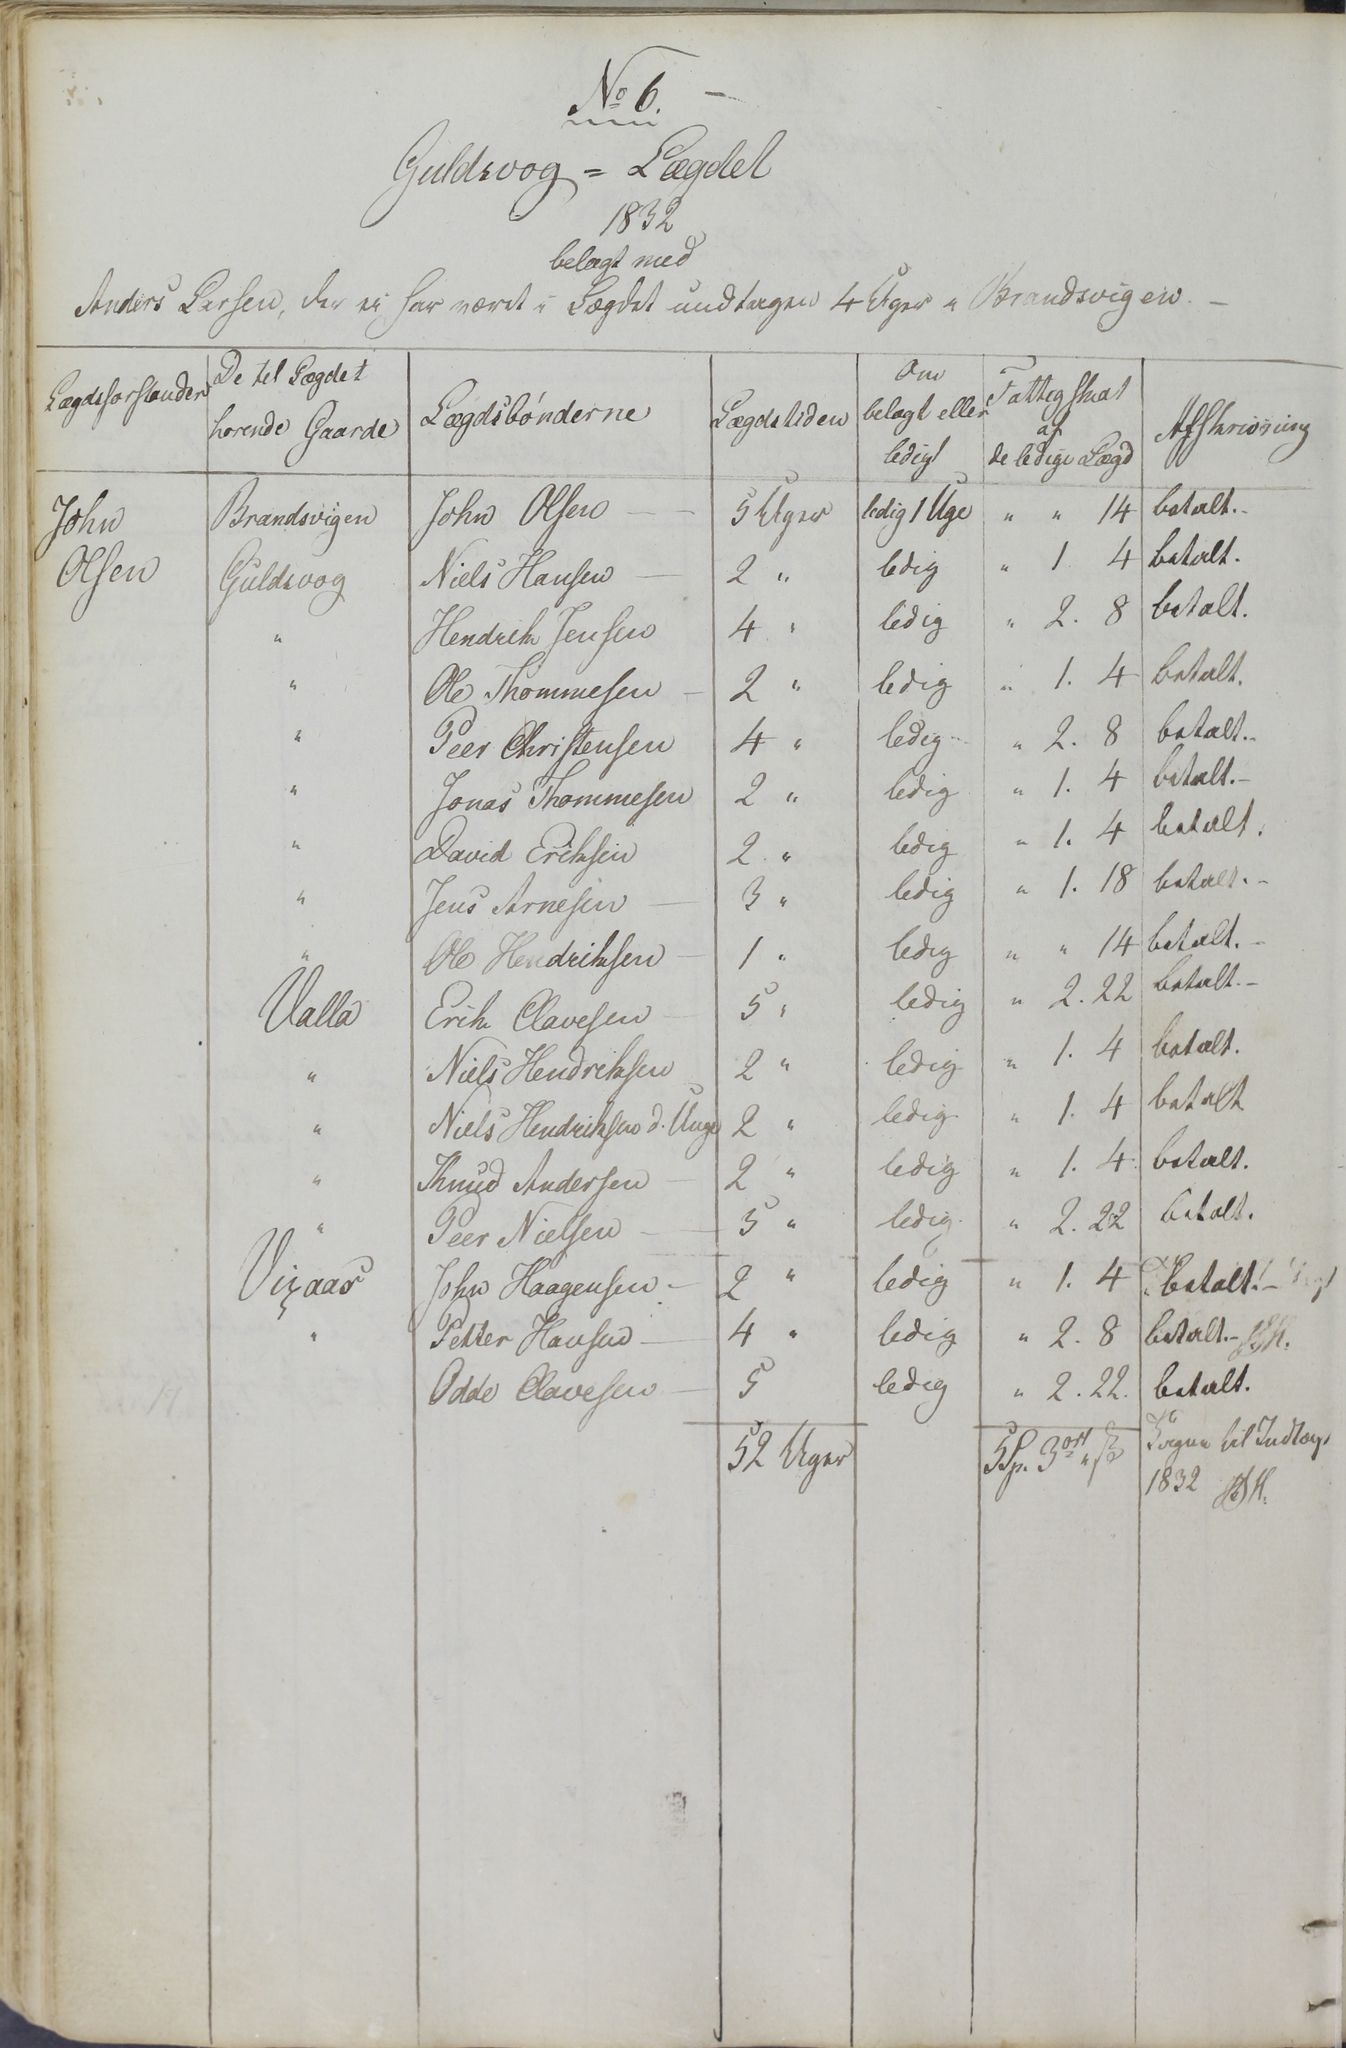 No 6. —
Guldsvog = Lægdet
1832
belagt med
Anders Larsen, der ei har været i Lægdet undtagen 4 Uger i Brandsvigen. —
Lægdsforstander | De til Lægdet hørende Gaarde | Lægdsbønderne | Lægdstiden | Om belagt eller ledigt | Fattigskat af de ledige Lægd | Afskrivning
John Olsen | Brandsvigen | John Olsen — — | 5 Uger | ledig 1 Uge | " " 14 | betalt. -
Guldsvog | Niels Hansen — | 2 " | ledig | " 1 4 | betalt.
" | Hendrik Jensen | 4 " | ledig | " 2. 8 | betalt.
" | Ole Thommesen - | 2 " | ledig | " 1. 4 | betalt.
" | Peer Christensen | 4 " | ledig | " 2. 8 | betalt. -
" | Jonas Thommesen | 2 " | ledig | " 1. 4 | betalt. -
" | David Eriksen | 2. " | ledig | " 1. 4 | betalt.
" | Jens Arnesen — | 3 " | ledig | " 1. 18 | betalt. -
" | Ole Hendriksen - | 1 " | ledig | " " 14 | betalt. -
Valla | Erik Olavesen — | 5 " | ledig | " 2. 22 | betalt. -
" | Niels Hendriksen | 2 " | ledig | " 1. 4 | betalt.
" | Niels Hendriksen d. Unge | 2 " | ledig | " 1. 4 | betalt
" | Knud Andersen - | 2 " | ledig | " 1. 4 | betalt.
" | Peer Nielsen — | 5 " | ledig | " 2. 22 | betalt.
Vigaas | John Haagensen - | 2 " | ledig | " 1. 4 | betalt. -
" | Petter Hansen — | 4 " | ledig | " 2. 8 | betalt. -
Odde Olavesen — | 5 | ledig | " 2. 22. | betalt.
52 Uger | 5 Sp. 3 ort " ß | til Indtægt
1832